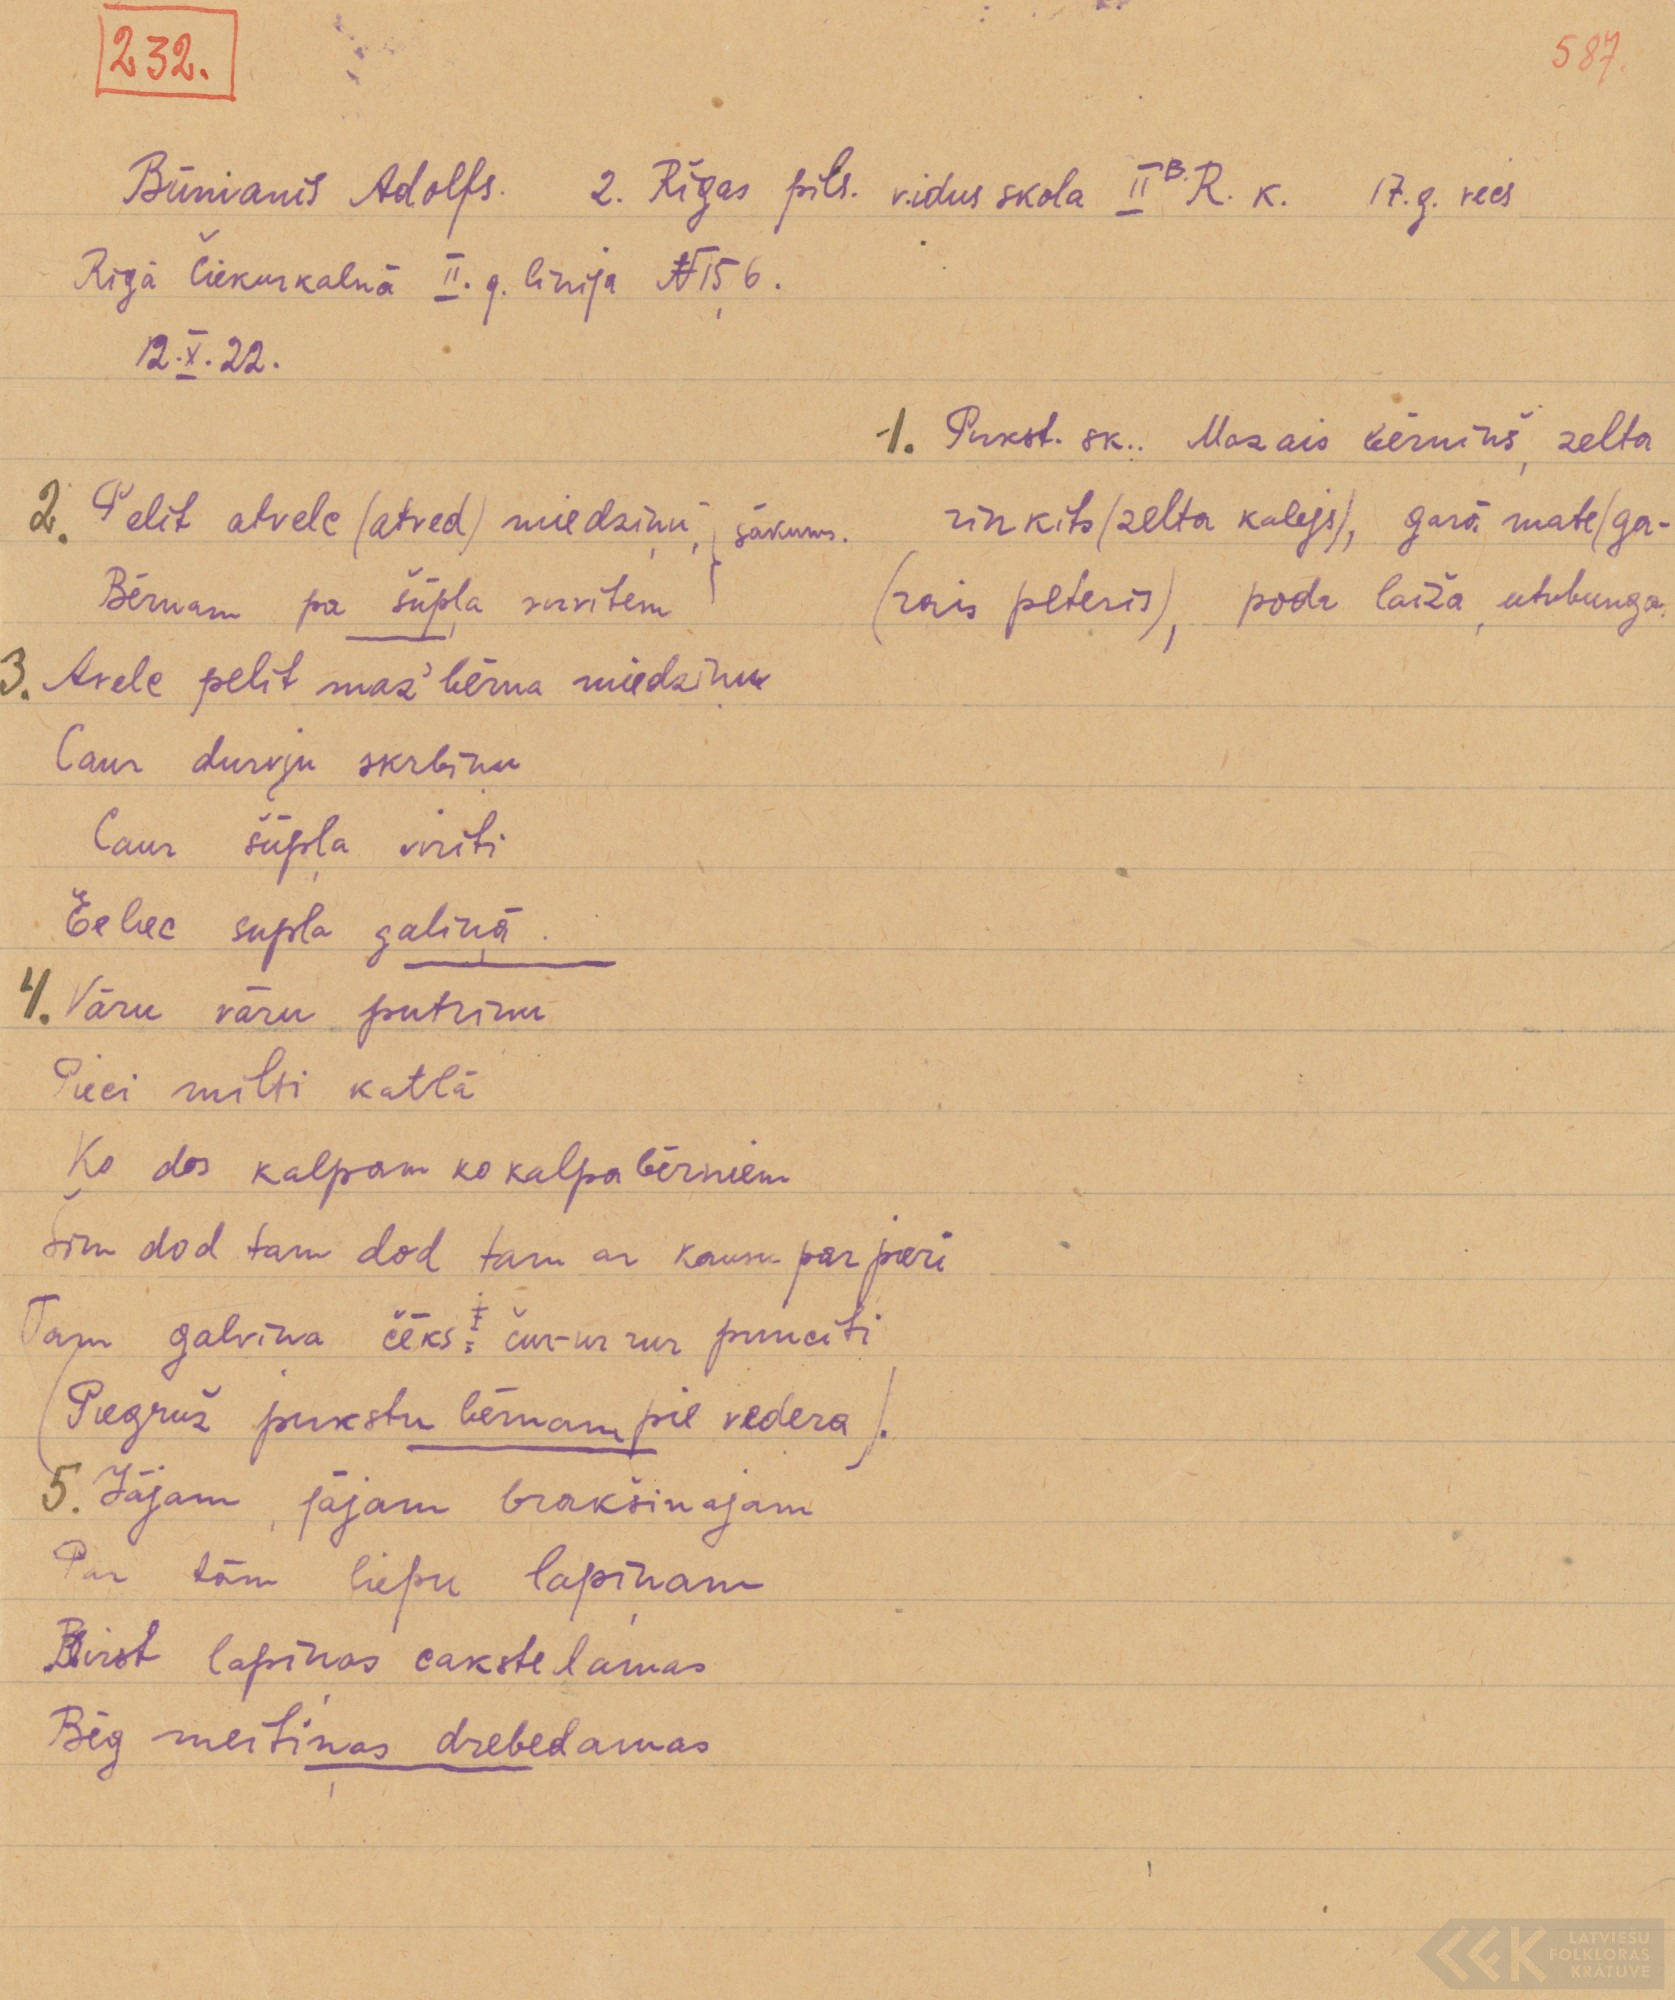 232.
587.
Būmanis Adolfs. 2. Rīgas pils. vidus skola II B. R. k. 17. g. vecs
Rīgā Čiekurkalnā II. g. līnija № 15, 6.
12.X.22.
1. Pirkst. sk.. Mazais bērniņš, zelta
rinkits (zelta kalejs), garā mate (ga-
(rais peteris), poda laiža, utubunga.
2. Pelīt atvele (atved) miedziņu, } sākums.
Bērnam pa šūpļa virvītem
3. Avele pelīt maz' bērna miedziņu
Caur durvju skrbiņu
Caur šūpļa virīti
Eebec supla galiņā.
4. Vāru vāru putriņu
Pieci milti katlā
Ko dos kalpam ko kalpa bērniem
Šim dod tam dod tam ar kausu par pieri
Tam galviņa čēks čur-ur rur punciti
(Piegruž pirkstu bērnam pie vedera).
5. Jājam, jājam brakšinajam
Par tām liepu lapiņam
Birst lapiņas cakstelamas
Bēg meitiņas drebedamas
LATVIEŠU
FOLKLORAS
KRĀTUVE